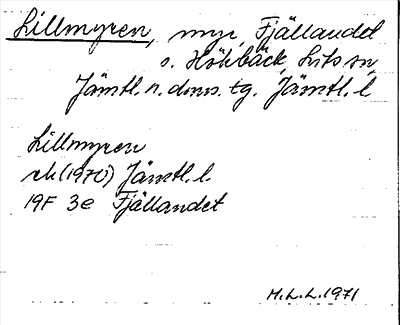 Lillmyren, myr, Fjällandet
o. Höhbäck, Lits sn,
Jämtl. n. doms. tg. Jämtl. l
Lillmyren
rh (1970) Jämtl. l.
19F 3e Fjällandet
M.L.L. 1971